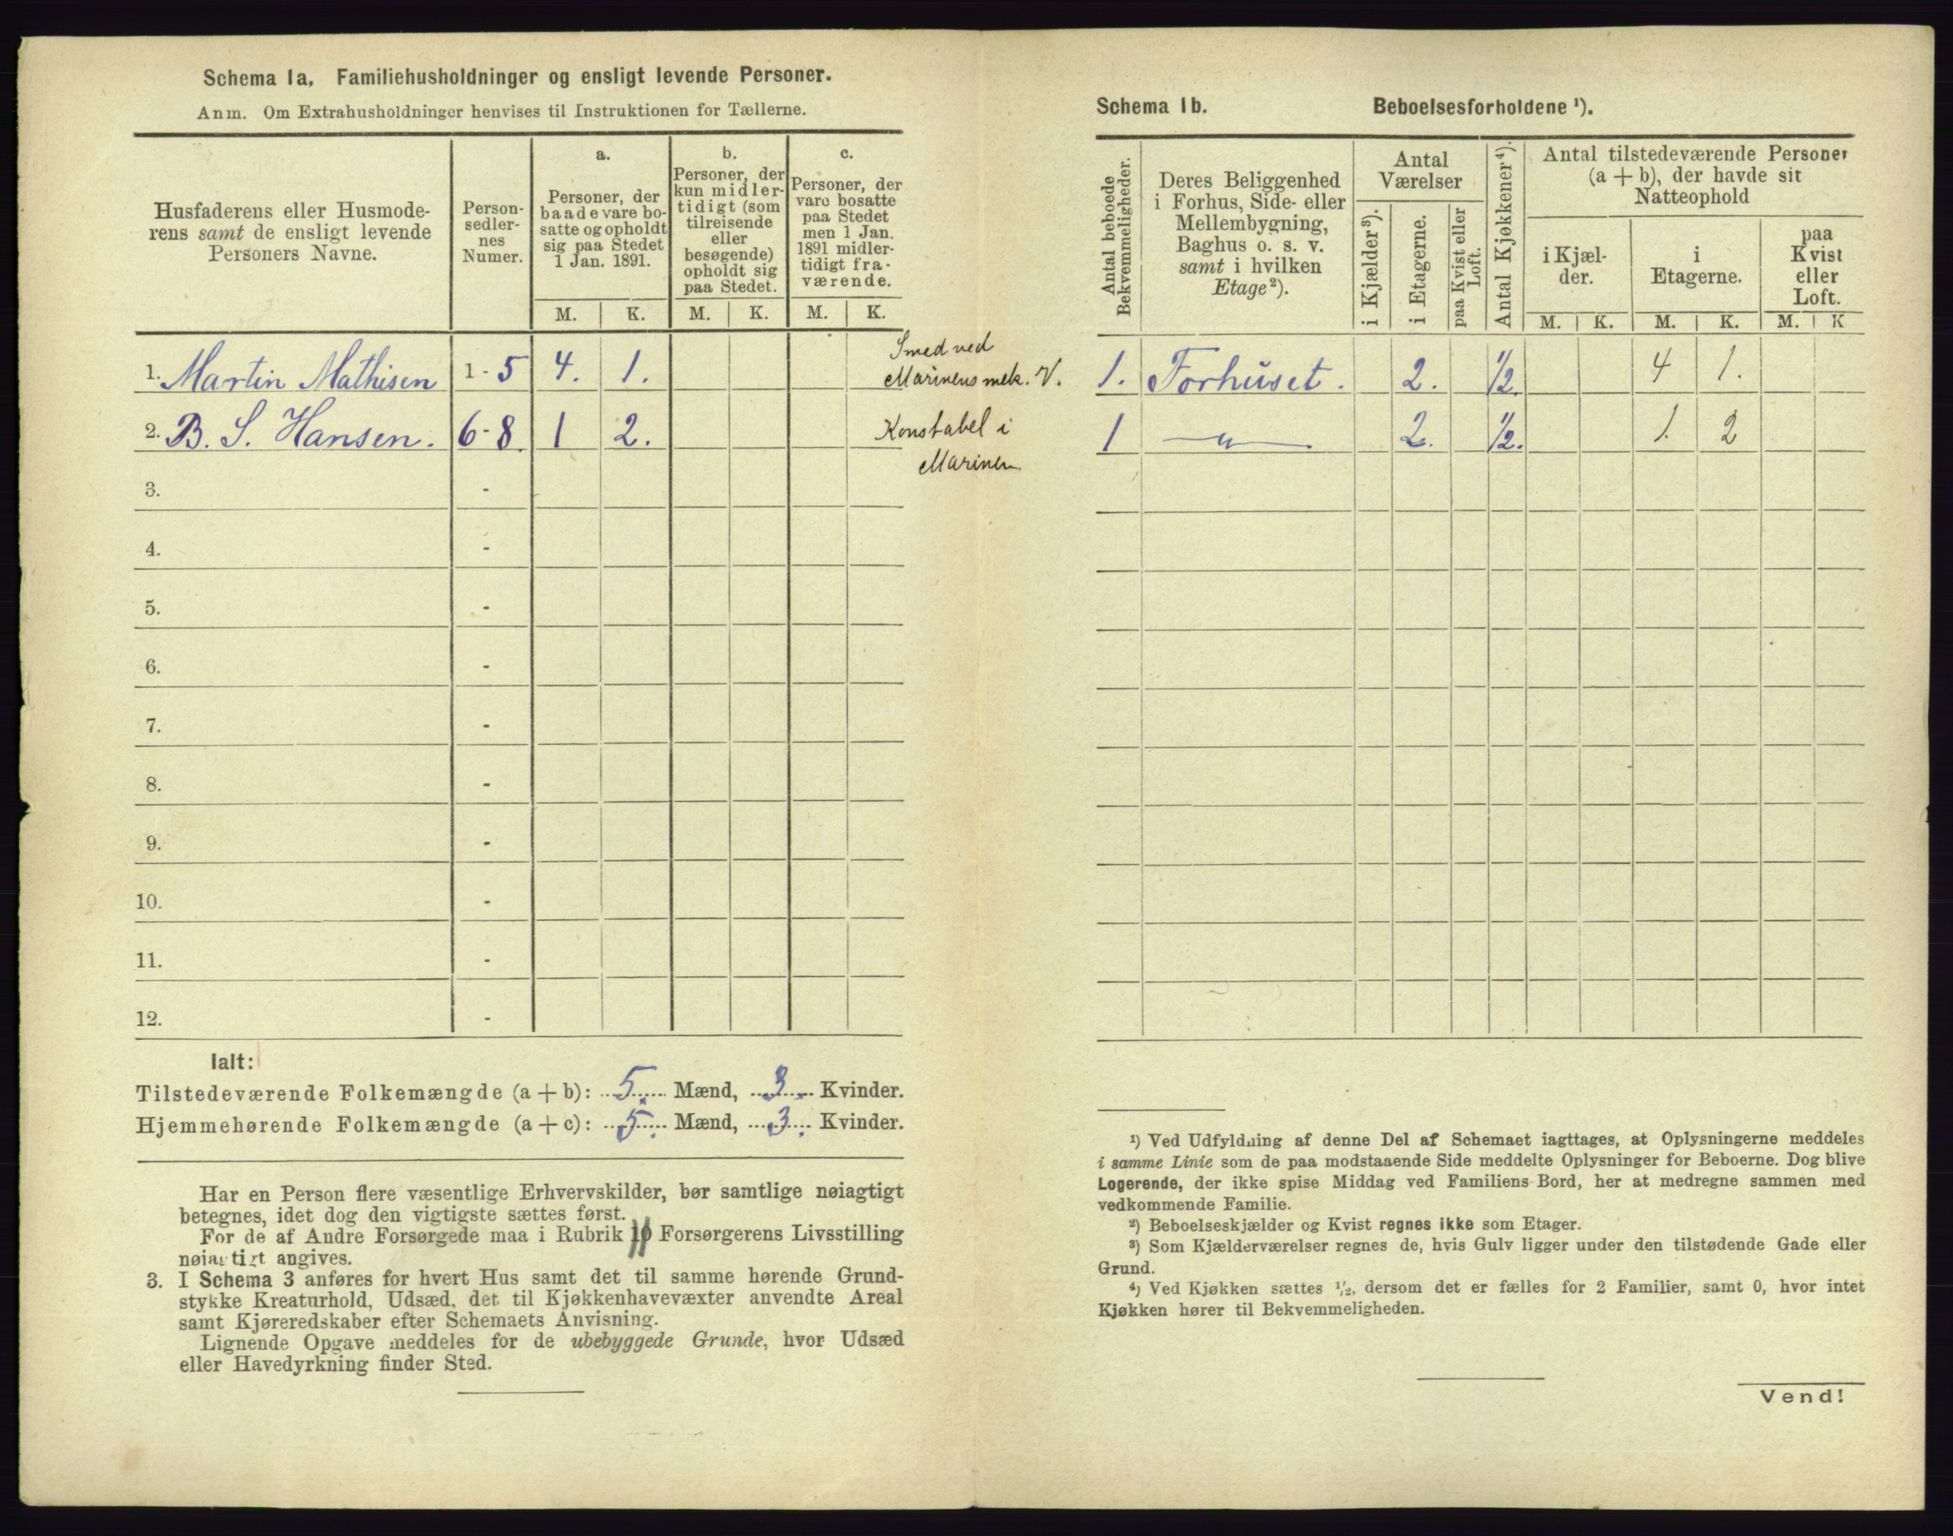 Schema 1a. Familiehusholdninger og ensligt levende Personer.
Anm. Om Extrahusholdninger henvises til Instruktionen for Tællerne.
Husfaderens eller Husmode-
rens samt de ensligt levende
Personers Navne.
Person-
sedler-
nes
Numer.
a.
Personer, der
baade vare bo-
satte og opholdt
sig paa Stedet
1 Jan. 1891.
b.
Personer, der
kun midler-
tidigt (som
tilreisende
eller
besøgende)
opholdt sig
paa Stedet.
c.
Personer, der
vare bosatte
paa Stedet
men 1 Jan.
1891 midler-
tidigt fra-
værende.
M. K. M. K. M. K.
1. Martin Mathisen 1-5 4. 1. Smed ved
Marinens mek. V.
2. B. S. Hansen. 6-8. 1 2. Konstabel i
Marinen
3. -
4. -
5. -
6. -
7. -
8. -
9. -
10. -
11. -
12. -
Ialt:
Tilstedeværende Folkemængde (a + b): 5. Mænd, 3. Kvinder.
Hjemmehørende Folkemængde (a + c): 5. Mænd, 3. Kvinder.
Har en Person flere væsentlige Erhvervskilder, bør samtlige nøiagtigt
betegnes, idet dog den vigtigste sættes først.
For de af Andre Forsørgede maa i Rubrik 10 Forsørgerens Livsstilling
nøiagtigt angives.
3. I Schema 3 anføres for hvert Hus samt det til samme hørende Grund-
stykke Kreaturhold, Udsæd, det til Kjøkkenhavevæxter anvendte Areal
samt Kjøreredskaber efter Schemaets Anvisning.
Lignende Opgave meddeles for de ubebyggede Grunde, hvor Udsæd
eller Havedyrkning finder Sted.
Schema 1b. Beboelsesforholdene ¹).
Antal beboede
Bekvemmeligheder.
Deres Beliggenhed
i Forhus, Side- eller
Mellembygning,
Baghus o. s. v.
samt i hvilken
Etage²).
Antal
Værelser
i Kjælder³).
i Etagerne.
paa Kvist eller
Loft.
Antal Kjøkkener⁴).
Antal tilstedeværende Personer
(a + b), der havde sit
Natteophold
i Kjæl-
der.
i
Etagerne.
paa
Kvist
eller
Loft.
M. K. M. K. M. K
1. Forhuset. 2. 1/2. 4 1.
1 —"— 2. 1/2. 1. 2
¹) Ved Udfyldning af denne Del af Schemaet iagttages, at Oplysningerne meddeles
i samme Linie som de paa modstaaende Side meddelte Oplysninger for Beboerne. Dog blive
Logerende, der ikke spise Middag ved Familiens Bord, her at medregne sammen med
vedkommende Familie.
²) Beboelseskjælder og Kvist regnes ikke som Etager.
³) Som Kjælderværelser regnes de, hvis Gulv ligger under den tilstødende Gade eller
Grund.
⁴) Ved Kjøkken sættes ½, dersom det er fælles for 2 Familier, samt 0, hvor intet
Kjøkken hører til Bekvemmeligheden.
Vend!